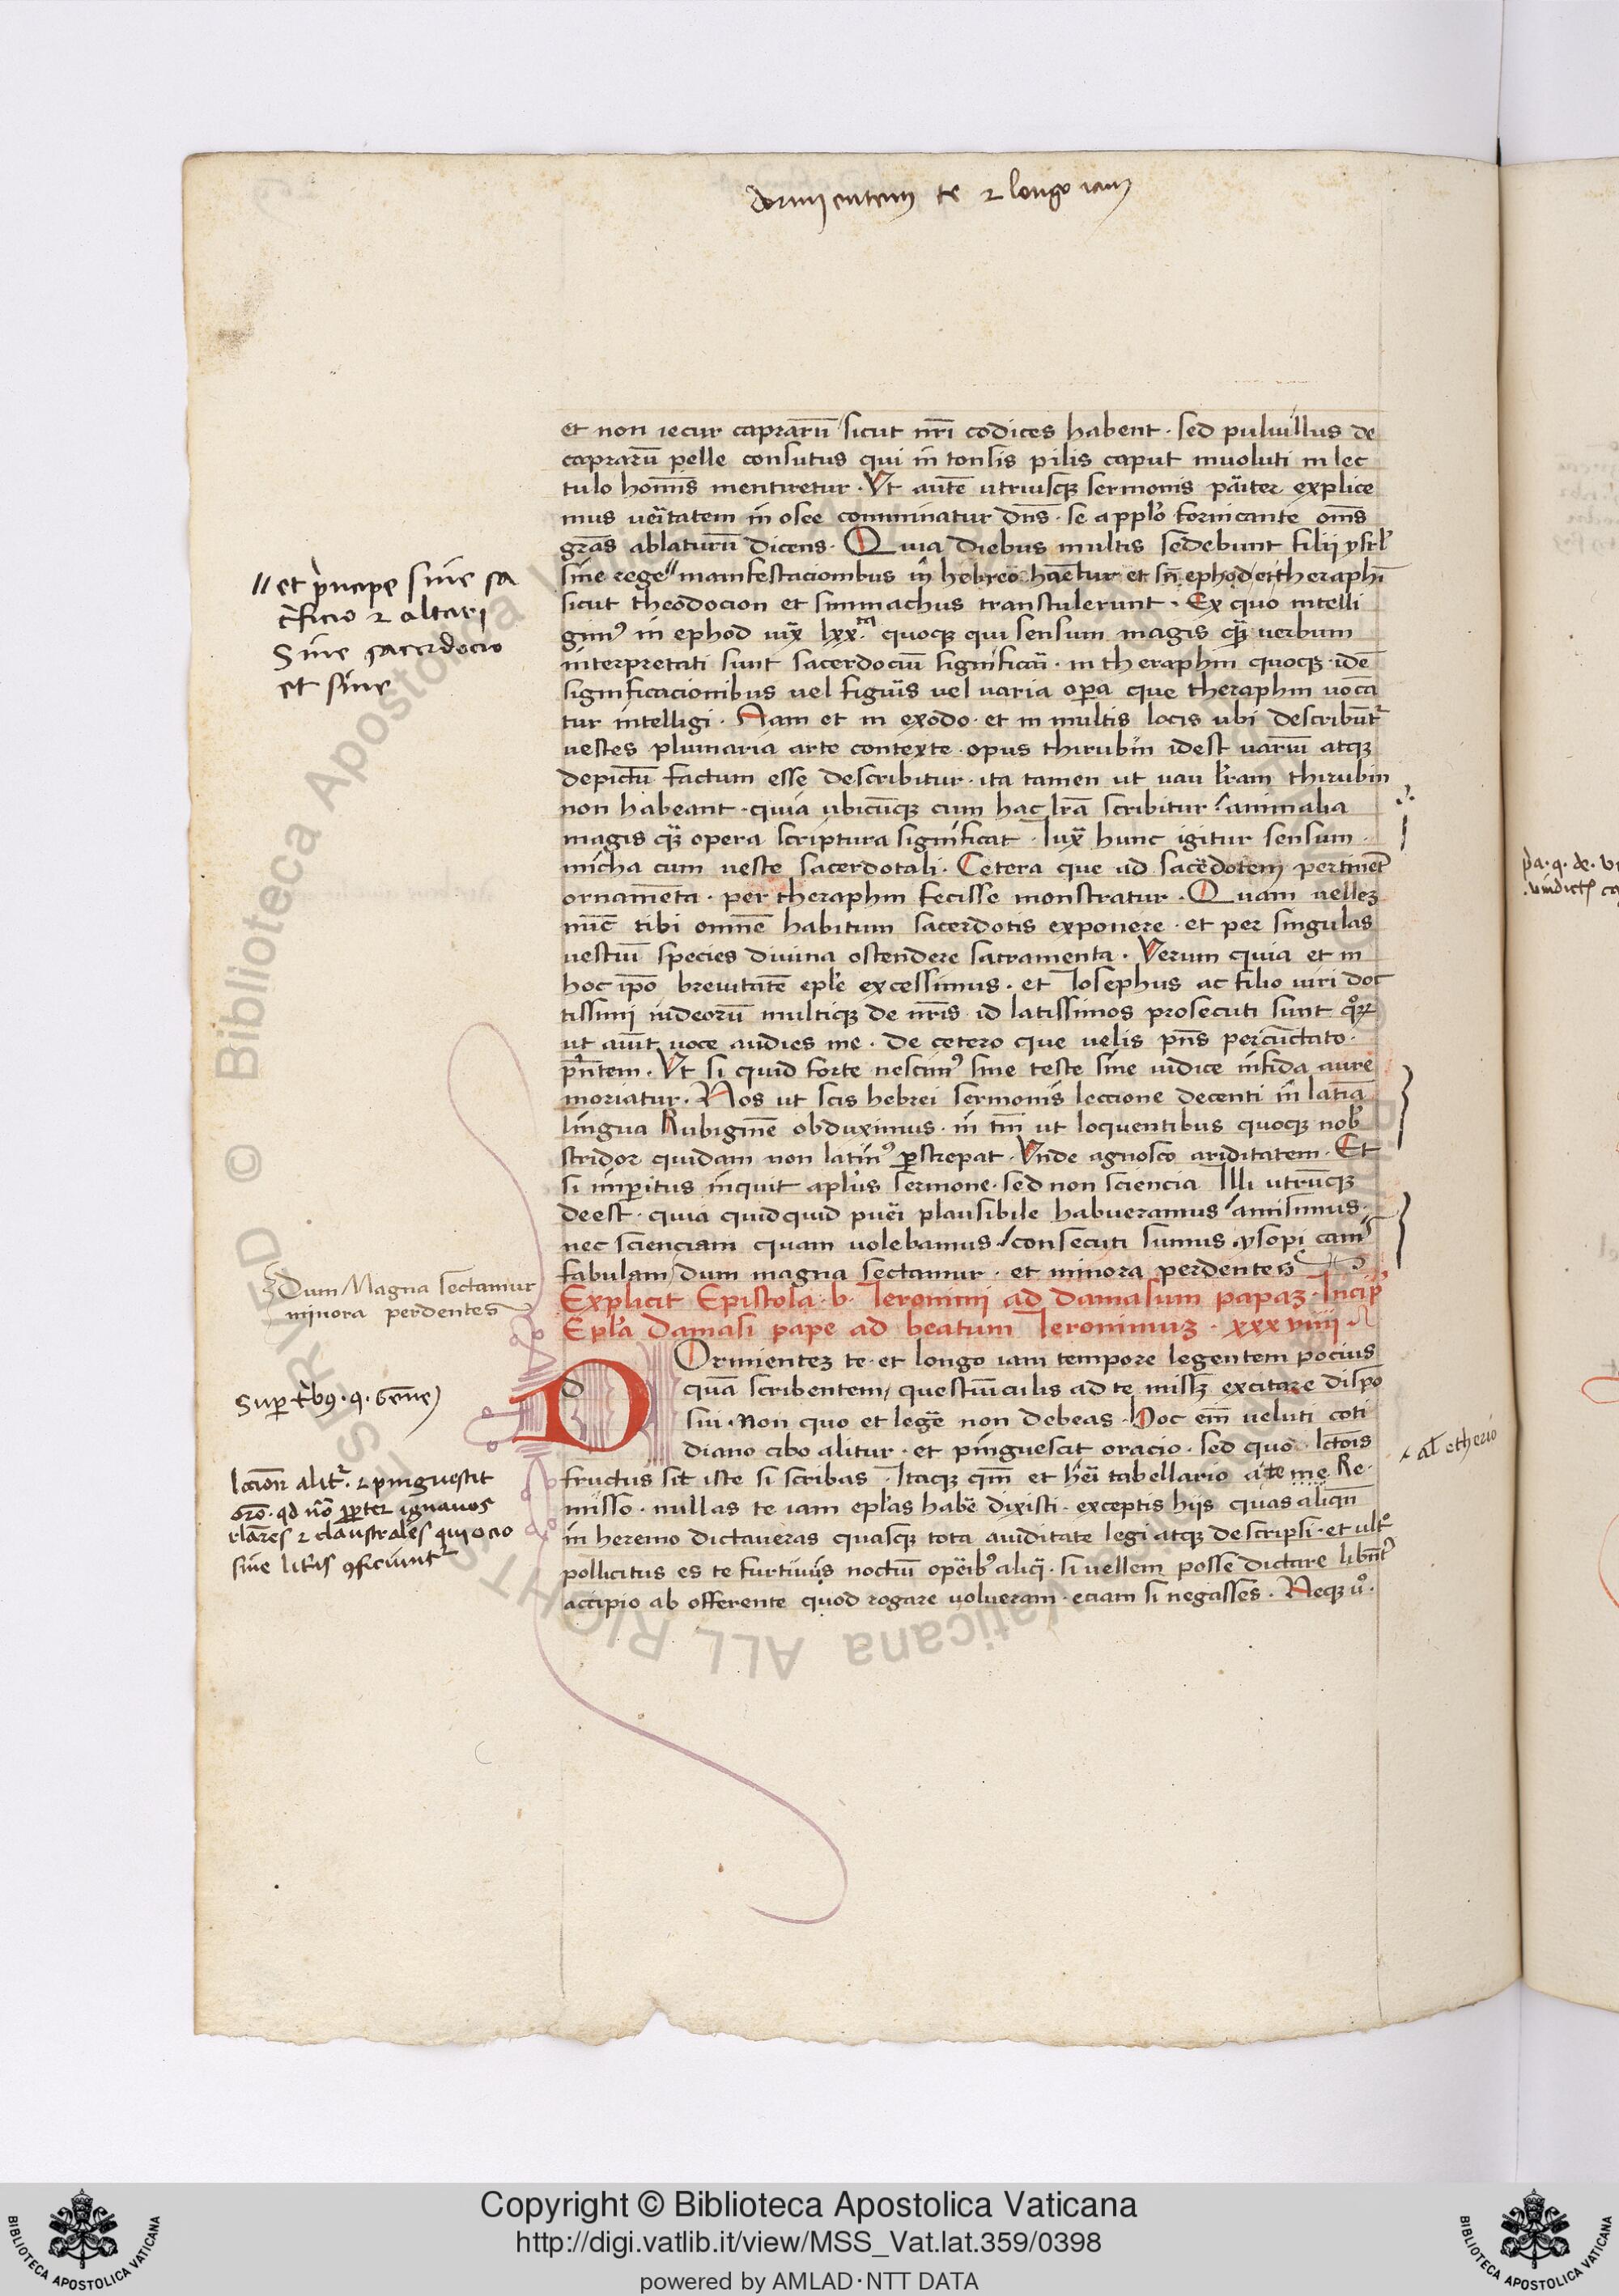 dormientem te ⁊ longo iam
et non iecur caprarū sicut nr̄i codices habent · sed puluillus de
caprarū pelle consutus qui in tonsis pilis caput inuoluti in lec
tulo homīs mentiretur · Vt autē utriusqꝫ sermonis pāiter explice
mus ueītatem in osee comminatur dn̄s · se a pplō fornicante om̄s
grās ablaturū dicens · Quia diebus multis sedebunt filii ysrl̄
sine rege // manifestacionibus in hebreo habetur et sn̄ ephod / et theraphī
sicut theodocion et simmachus transtulerunt · Ex quo intelli
gimꝰ in ephod iux̄ lxx.ta quoqꝫ qui sensum magis qꝫ̄ uerbum
interpretati sunt sacerdociū significāi · in theraphin quoqꝫ · idē
significacionibus uel figuīs uel uaria opa que theraphin uocā
tur intelligi · Nam et in exodo · et in multis locis ubi describūtr̄
uestes plumaria arte contexte · opus thirubin idest uariū atqꝫ
depictū factum esse describitur · ita tamen ut uau lr̄am thirubin
non habeant · quia ubicūqꝫ cum hac lrā scribitur / animalia
magis qꝫ̄ opera scriptura significat · Iux̄ hunc igitur sensum ·
micha cum ueste sacerdotali · Cetera que ad sacēdotem pertinēt
ornamēta · per theraphin fecisse monstratur · Quam uelleꝫ
nūc tibi omnē habitum sacerdotis exponere · et per singulas
uestiū species diuina ostendere sacramenta · Verum quia et in
hoc ip̄o breuitatē epl̄e excessimus · et Iosephus ac filio uiri doc
tissimi iudeorū multiqꝫ de nr̄is · id latissimos prosecuti sunt
ut aiūt uoce audies me · de cetero que uelis pn̄s percūctato ·
pn̄tem · Vt si quid forte nescimꝰ sine teste sine iudice infida aure
moriatur · Nos ut scis hebrei sermonis leccione decenti in latiā
lingua Rubiginē obduximus · in tm̄ ut loquentibus quoqꝫ nob̄
stridor quidam non latinꝰ ꝑstrepat · Vnde agnosco ariditatem · Et
si imꝑitus inquit apl̄us sermone · sed non sciencia Illi utrūqꝫ
deest · quia quidquid pueī plausibile habueramus / amisimus ·
nec scienciam quam uolebamus · / consecuti sumus ysopi canis
fabulam / dum magna sectamur · et minora perdentes
Explicit Epistola · b · Ieronimi ad damasum papaꝫ · Incip̄
Epl̄a Damasi pape ad beatum Ieronimuꝫ · xxxviiii ·
Dormienteꝫ te · et longo iam tempore legentem pocius
quā scribentem / questiūculis ad te missꝫ excitare dispo
sui · Non quo et legē non debeas · Hoc em̄ ueluti coti
diano cibo alitur · et pinguescit oracio · sed quo · lctōis
fructus sit iste si scribas · Itaqꝫ qm̄ et hēi tabellario a te me Re ·
misso · nullas te iam epl̄as habē dixisti · exceptis hijs quas aliqn̄
in heremo dictaueras quasqꝫ tota auiditate legi atqꝫ descripsi · et ultº
pollicitus es te furtiuijs noctiū opēibꝰ aliq̄ · si uellem posse dictare libn̄tr̄
accipio ab offerente quod rogare uolueram · eciam si negasses · Neqꝫ uº ·
// et pr̄ncipe sine sa
cr̄ficio ⁊ altari
Sine sacerdocio
et sine
Dum Magna sectamur
minora perdentes
Suꝑ tribꝰ · q · Geneē
lcciōn̄ alitr̄ · ⁊ pinguescit
orō · qd nō ꝓpter ignauos
claustrales qui ocio
sine litīs ꝯficiūntr̄
al̄ etherio
Copyright © Biblioteca Apostolica Vaticana
http://digi.vatlib.it/view/MSS_Vat.lat.359/0398
powered by AMLAD·NTT DATA
BIBLIOTECA APOSTOLICA VATICANA
BIBLIOTECA APOSTOLICA VATICANA